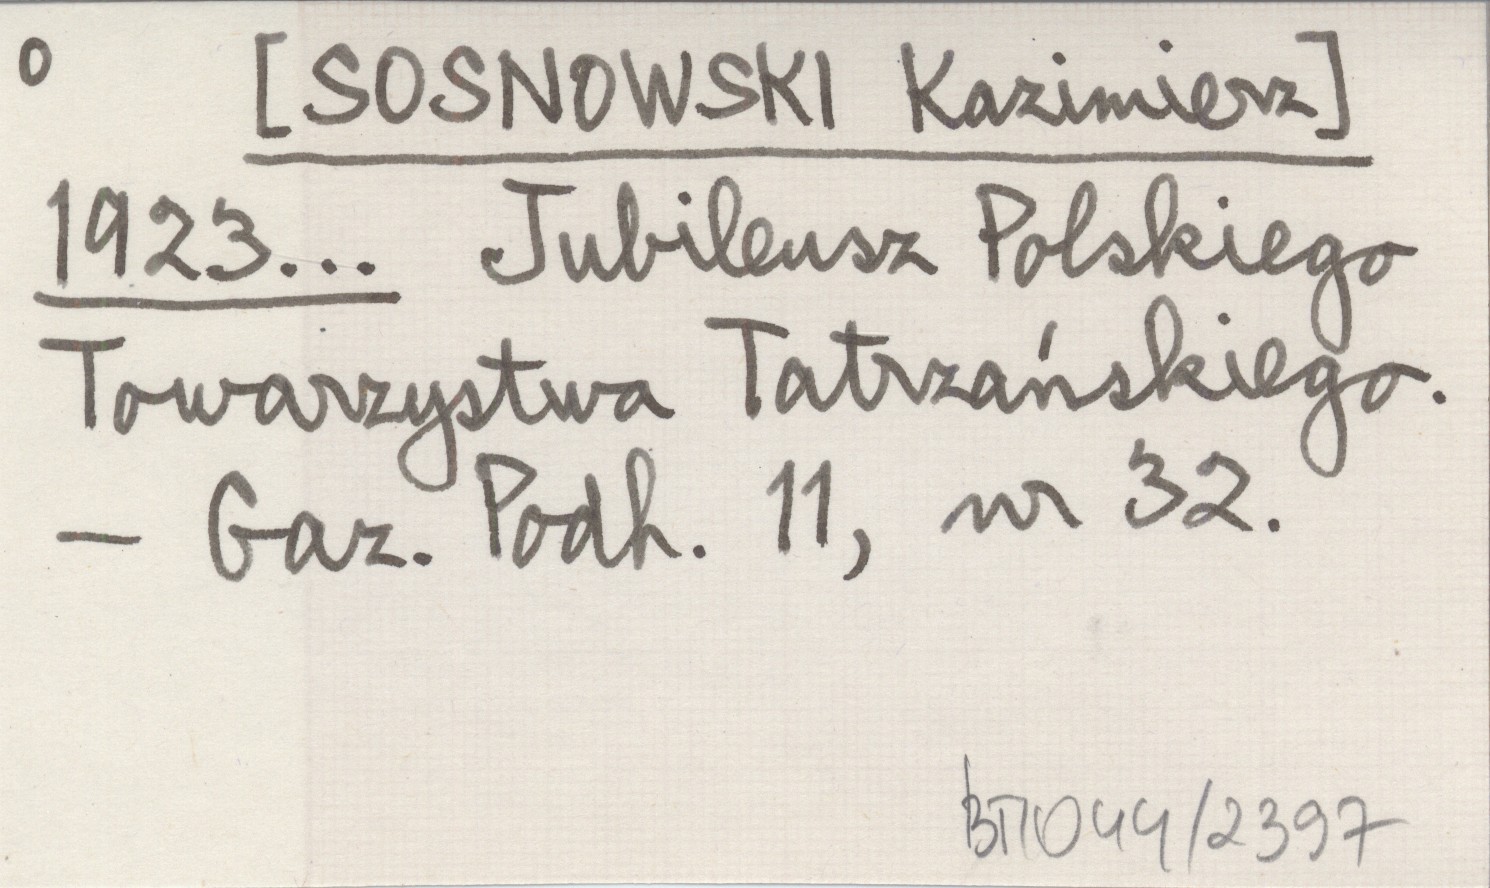 o [SOSNOWSKI Kazimierz]
1923... Jubileusz Polskiego
Towarzystwa Tatrzańskiego.
— Gaz. Podh. 11, nr 32.
044/2397